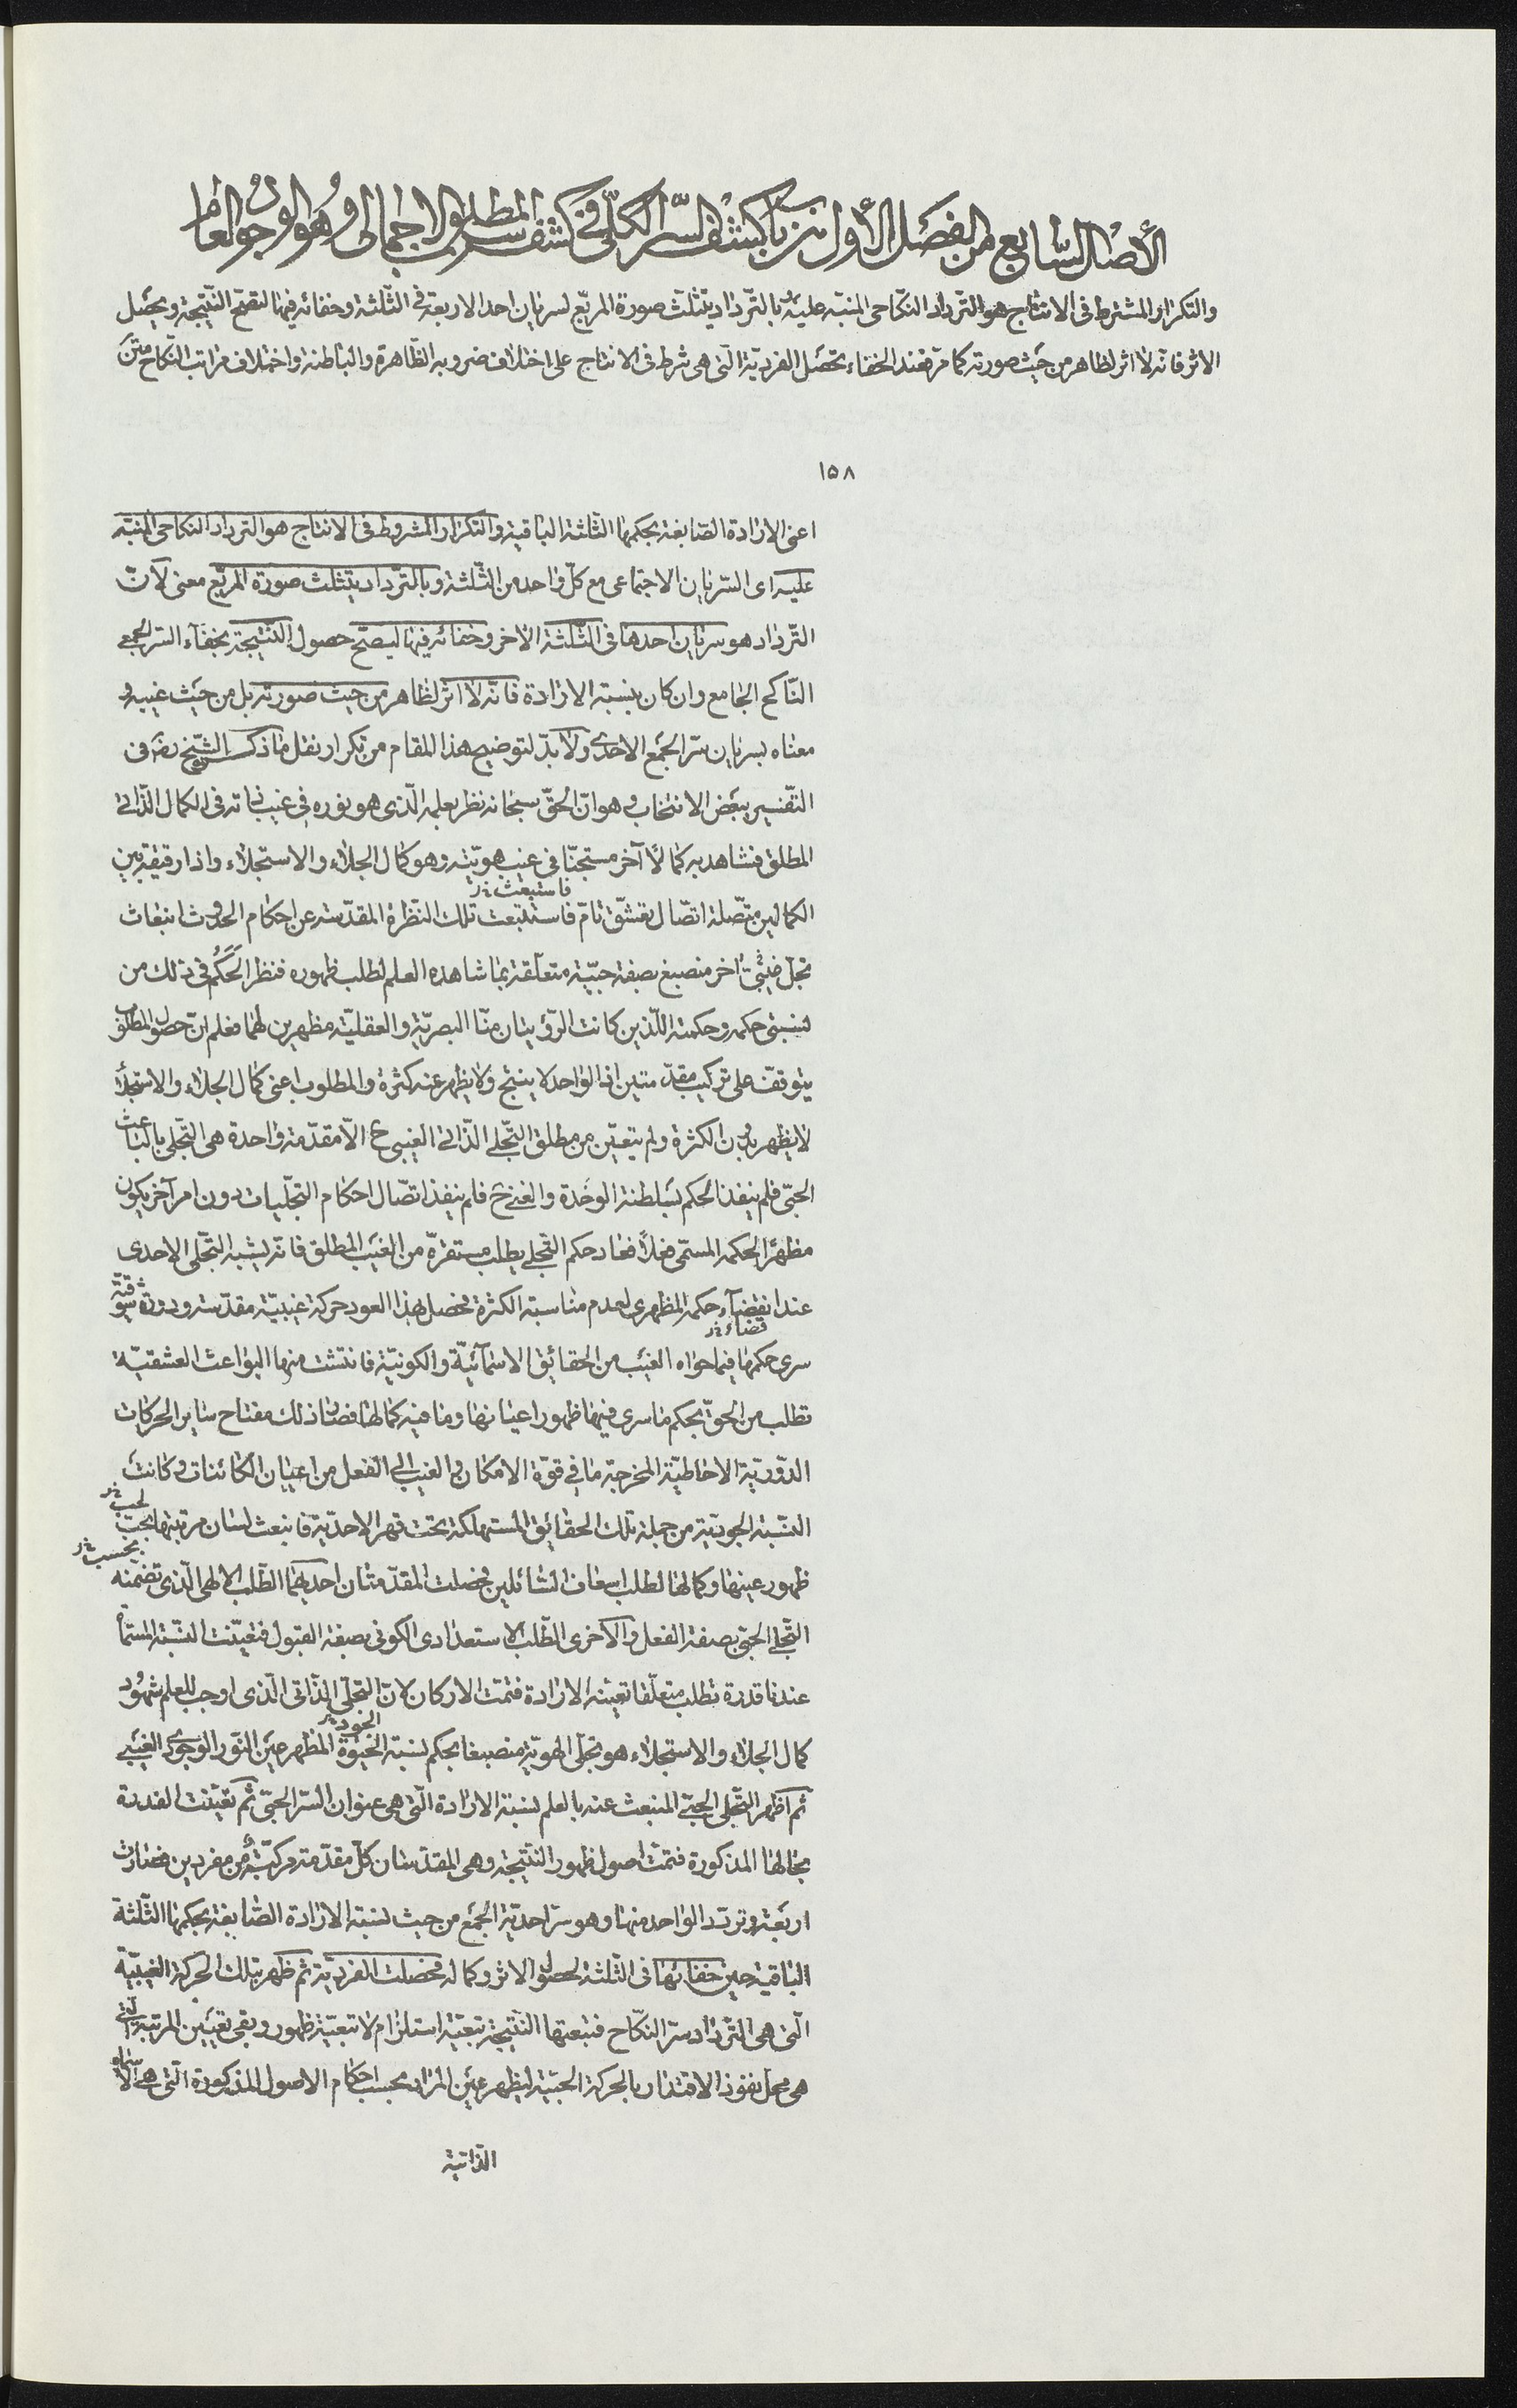 الأصل السابع من الفصل الأول من باب كشف السرّ الكلّى فى كشف سرّ المطلب الاجمالى وهو الوجود العام
والتكرار المشترط فى الانتاج هو التّرداد النكاحى المنبّه عليه وبالتّرداد يتثلّث صورة المربّع لسريان احد الاربعة فى الثلثة وخفائه فيها لتصحّ النتيجة ويحصل
الاثر فانّه لا اثر لظاهر من حيث صورته كما مرّ فعند الخفاء تحصل الفرديّة الّتى هى شرط فى الانتاج على اختلاف ضروبه الظّاهرة والباطنة واختلاف مراتب النّكاح متن
١٥٨
اعنى الارادة الصّابغة بحكمها الثلثة الباقية والتكرار المشروط فى الانتاج هو الترداد النكاحى المنبّه
عليه اى السّريان الاجتماعى مع كلّ واحد من الثّلثة وبالتّرداد يتثلث صورة المربّع معنى لانّ
التّرداد هو سريان احدها فى الثّلثة الاخر وخفائه فيها ليصحّ حصول النتيجة بخفاء السّر الجمعى
النّاكح الجامع وان كان بنسبة الارادة فانّه لا اثر لظاهر من حيث صورته بل من حيث غيبه و
معناه بسريان سرّ الجمع الاحدى ولا بدّ لتوضيح هذا المقام من تكرار نقل ما ذكره الشّيخ رضه فى
التّفسير ببعض الانتخاب وهو انّ الحقّ سبحانه نظر بعلمه الّذى هو نوره فى غيب ذاته فى الكمال الذّاتى
المطلق فشاهد به كمالاً آخر مستجنّا فى غيب هويّته وهو كمال الجلاء والاستجلاء واذا رقيقة بين
فاستبعثت خ‌ر
الكمالين متّصلة اتّصال تعشّق تامّ فاستتبعت تلك النّظرة المقدّسة عن احكام الحدوث انبعاث
تجلّ غيبىّ آخر منصبغ بصفة حبّية متعلّقة بما شاهده العلم لطلب ظهوره فنظر الحَكَم فى ذلك من
نسبتى حكمه وحكمته اللّذين كانت الرّؤيتان منّا البصريّة والعقليّة مظهرين لهما فعلم انّ حصول المطلوب
يتوقّف على تركيب مقدّمتين اذ الواحد لا ينتج ولا يظهر عنه كثرة والمطلوب اعنى كمال الجلاء والاستجلاء
لا يظهر بدون الكثرة ولم يتعيّن من مطلق التّجلى الذّاتى الغيبى ح الّا مقدّمة واحدة هى التّجلى بالباعث
الحبّى فلم ينفذ الحكم بسلطنة الوحدة والغنى ح فلم ينفذ اتّصال احكام التجلّيات دون امر آخر يكون
مظهرًا لحكمه المسمّى فعلاً فعاد حكم التجلى يطلب مستقرّه من الغيب المطلق فانّه يشبه التّجلى الاحدى
عند انقضاء حكمه المظهرى لعدم مناسبة الكثرة فحصل بهذا العود حركة غيبيّة مقدّسة ودورة شوقيّة
قضاء خ‌ر
سرى حكمها فيما حواه الغيب من الحقائق الاسمائيّة والكونيّة فانتشت منها البواعث العشقيّة
تطلب من الحقّ بحكم ما سرى فيها ظهور اعيانها وما فيه كمالها فصار ذلك مفتاح ساير الحركات
الدّوريّة الاحاطيّة المخرجة ما فى قوّة الامكان والغيب الى الفعل من اعيان الكائنات وكانت
النّسبة الجوديّة من جملة تلك الحقائق المستهلكة تحت قهر الاحديّة فانبعث لسان مرتبتها بحبّ
لحب خ‌ر
بحسب خ‌ر
ظهور عينها وكمالها لطلب اسعاف السّائلين فحصلت المقدّمتان احديهما الطّلب الالهى الّذى تضمّنه
التّجلى الحبّى بصفة الفعل والاخرى الطّلب الاستعدادى الكونى بصفة القبول فتعيّنت النّسبة المسمّاة
عندنا قدرة تطلب متعلّقا تعيّنه الارادة فتمّت الاركان لانّ التجلّى الذّاتى الّذى اوجب للعلم شهود
الجود خ‌ر
كمال الجلاء والاستجلاء هو تجلى الهويّة منصبغا بحكم نسبة الحيوة المظهر عين النّور الوجودى الغيبى
ثم اظهر التّجلى الحبّى المنبعث عنه بالعلم نسبة الارادة الّتى هى عنوان السّر الحبّى ثم تعيّنت القدرة
بحالها المذكورة فتمّت اصول ظهور النّتيجة وهى المقدّمتان كلّ مقدّمة مركّبة من مفردين فصارت
اربعة وتردّد الواحد منها وهو سرّ احديّة الجمع من حيث نسبة الارادة الصّابغة بحكمها الثّلثة
الباقية حين خفائها فى الثّلثة لحصول الاثر وكماله فحصلت الفرديّة ثم ظهر بتلك الحركة الغيبيّة
الّتى هى التّرداد سرّ النكّاح فتبعتها النّتيجة تبعيّة استلزام لا تبعيّة ظهور وبقى تعيين المرتبة الّتى
هى محلّ نفوذ الاقتدار بالحركة الحبّية ليظهر عين المراد بحسب احكام الاصول المذكورة الّتى هى الاسماء
الذّاتية